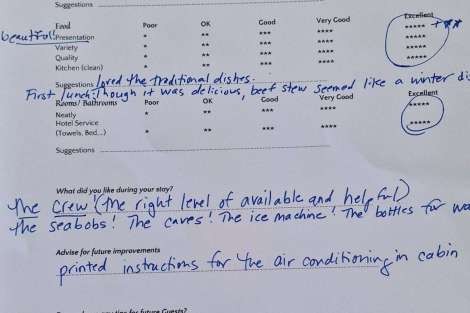 Suggestions
Food Poor OK Good Very Good Excellent
beautiful! Presentation * ** *** **** ***** + **
Variety * ** *** **** *****
Quality * ** *** **** *****
Kitchen (clean) * ** *** **** *****
Suggestions loved the traditional dishes.
First lunch, though it was delicious, beef stew seemed like a winter di
Rooms/ Bathrooms Poor OK Good Very Good Excellent
Neatly * ** *** **** *****
Hotel Service
(Towels, Bed...) * ** *** **** *****
Suggestions
What did you like during your stay?
The crew! (the right level of available and helpful)
the seabobs! The caves! The ice machine! The bottles for wa
Advise for future improvements
printed instructions for the air conditioning in cabin
for future Guests?